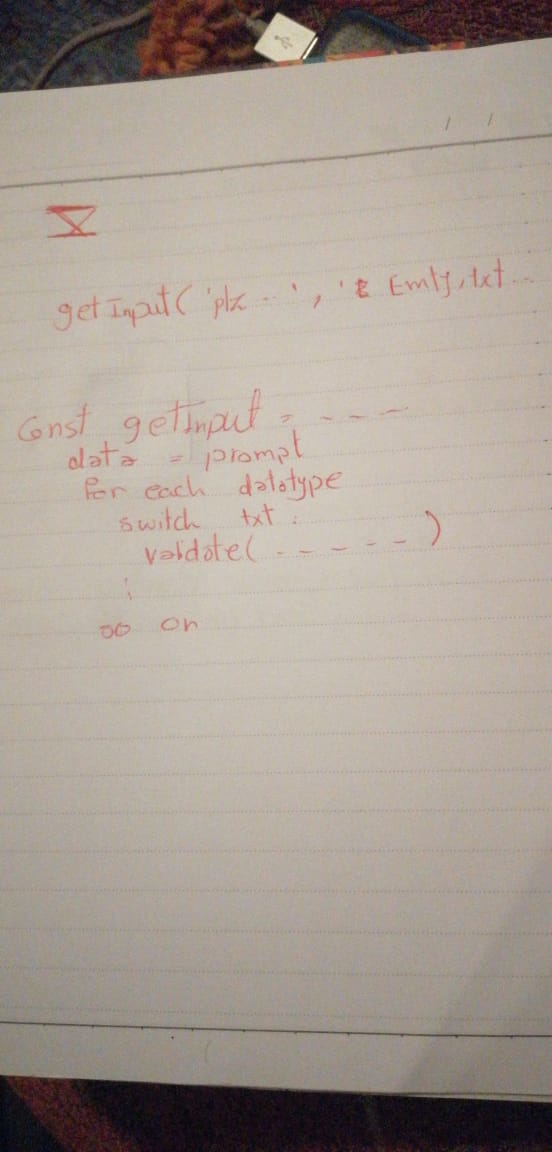 getInput( 'plz -- ', ' Emty, txt --
Const getInput = - - -
data = prompt
for each datatype
switch txt :
validate( - - - - - )
:
so on